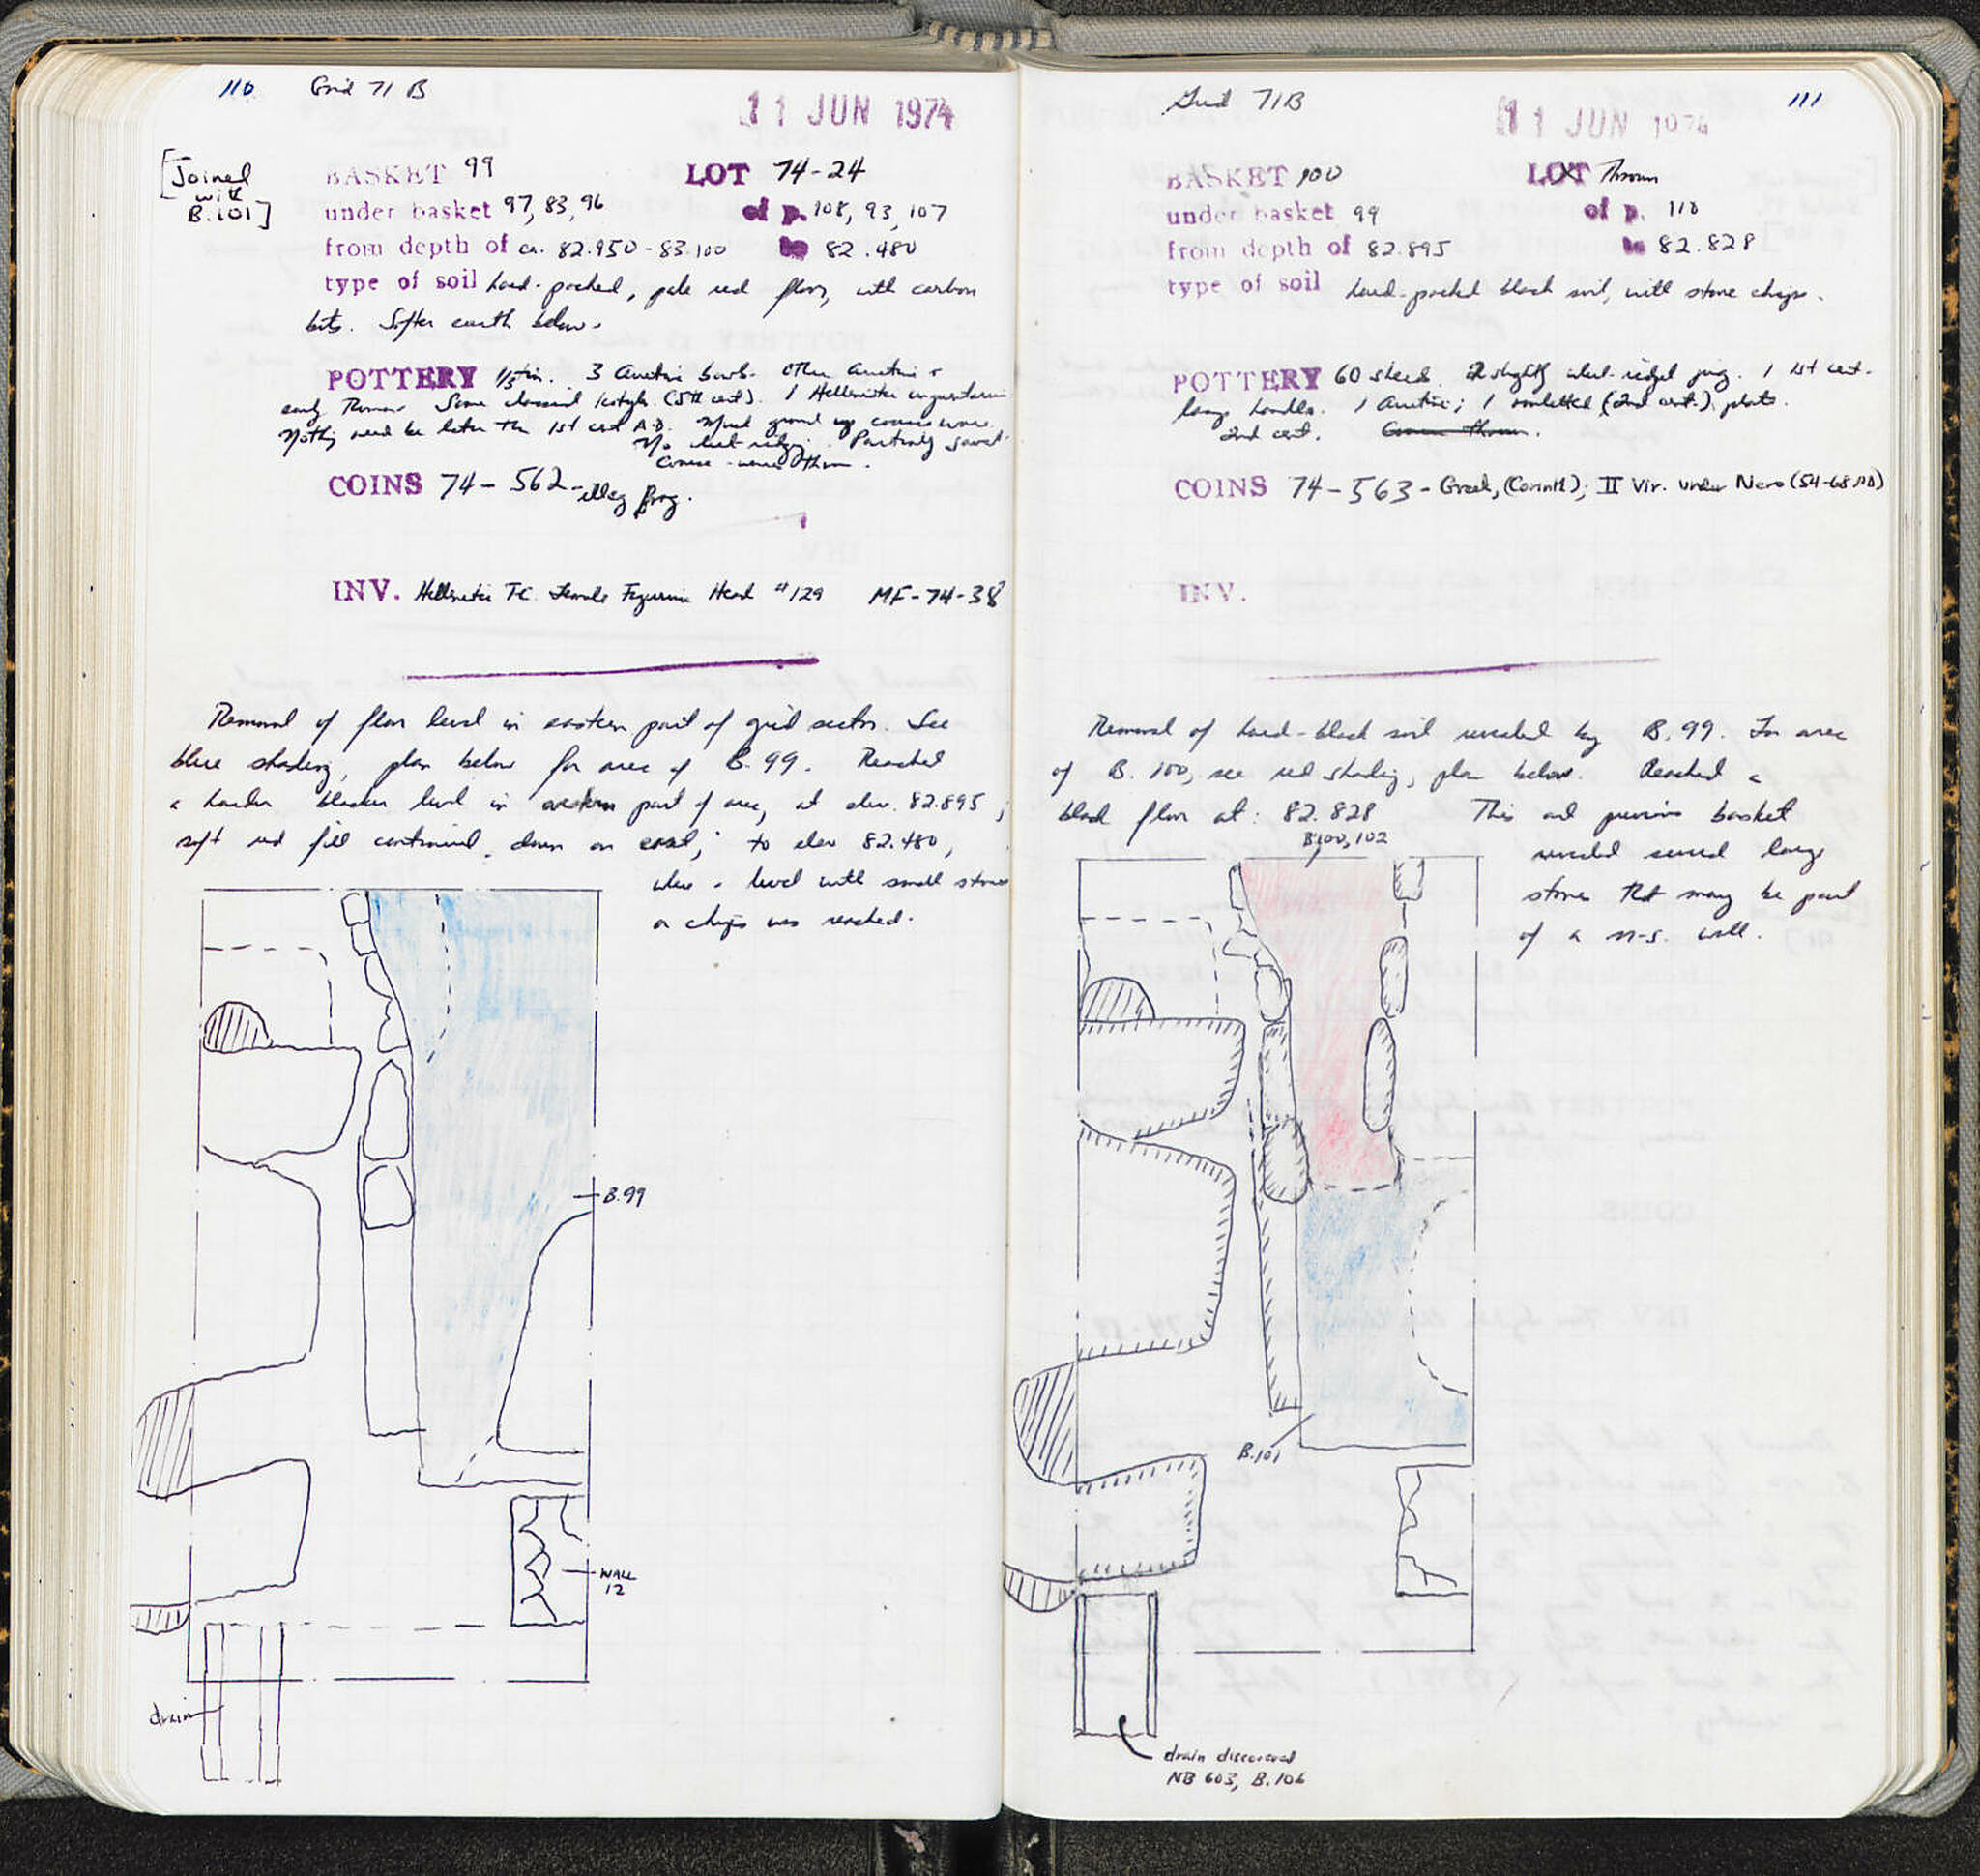 110 Grid 71 B
11 JUN 1974
[Joined
with
B.101]
BASKET 99 LOT 74-24
under basket 97, 83, 96 of p. 108, 93, 107
from depth of ca. 82.950 - 83.100 to 82.480
type of soil hard-packed, pale red floor, with carbon
bits. Softer earth below.
POTTERY 1/3 tin. 3 Arretine bowls. Other Arretine +
early Roman. Some classical kotyle (5th cent). 1 Hellenistic unguentarium
Nothing need be later than 1st cent A.D. Much ground up coarse ware.
No wheel-ridging. Partially saved.
Coarse-wares thrown.
COINS 74-562- illeg frag.
INV. Hellenistic TC. Female Figurine Head #129 MF-74-38
Removal of floor level in eastern part of grid sector. See
blue shading, plan below for area of B.99. Reached
a harder blacker level in part of area, at elev. 82.895;
soft red fill continued down on east, to elev 82.480,
where a level with small stones
or chips was reached.
B.99
WALL
12
drain
Grid 71B
11 JUN 1974
111
BASKET 100 LOT Thrown
under basket 99 of p. 110
from depth of 82.895 to 82.828
type of soil hard-packed black soil, with stone chips.
POTTERY 60 sherds. 2 slightly wheel-ridged jug. 1 1st cent.
lamp handle. 1 Arretine; 1 rouletted (2nd cent.) plate.
2nd cent. Coarse thrown.
COINS 74-563- Greek, (Corinth); II Vir. under Nero (54-68 AD)
INV.
Removal of hard-black soil revealed by B.99. For area
of B.100, see red shading, plan below. Reached a
black floor at: 82.828 This and previous basket
revealed several large
stones that may be part
of a n-s. wall.
B.100, 102
B.101
drain discovered
NB 603, B.106